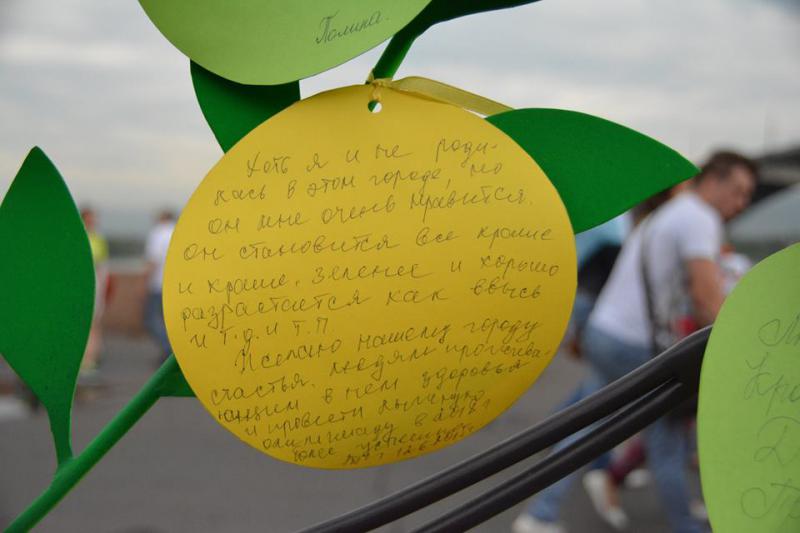 Полина.
Хоть я и не роди-
лась в этом городе, но
он мне очень нравится.
Он становится все краше
и краше, зеленее и хорошо
разрастается как ввысь
и т.д. и т.п.
Желаю нашему городу
счастья, людям прожива-
ющим в нем здоровья
и провести лыжную
олимпиаду в 2018 г
более успешно.